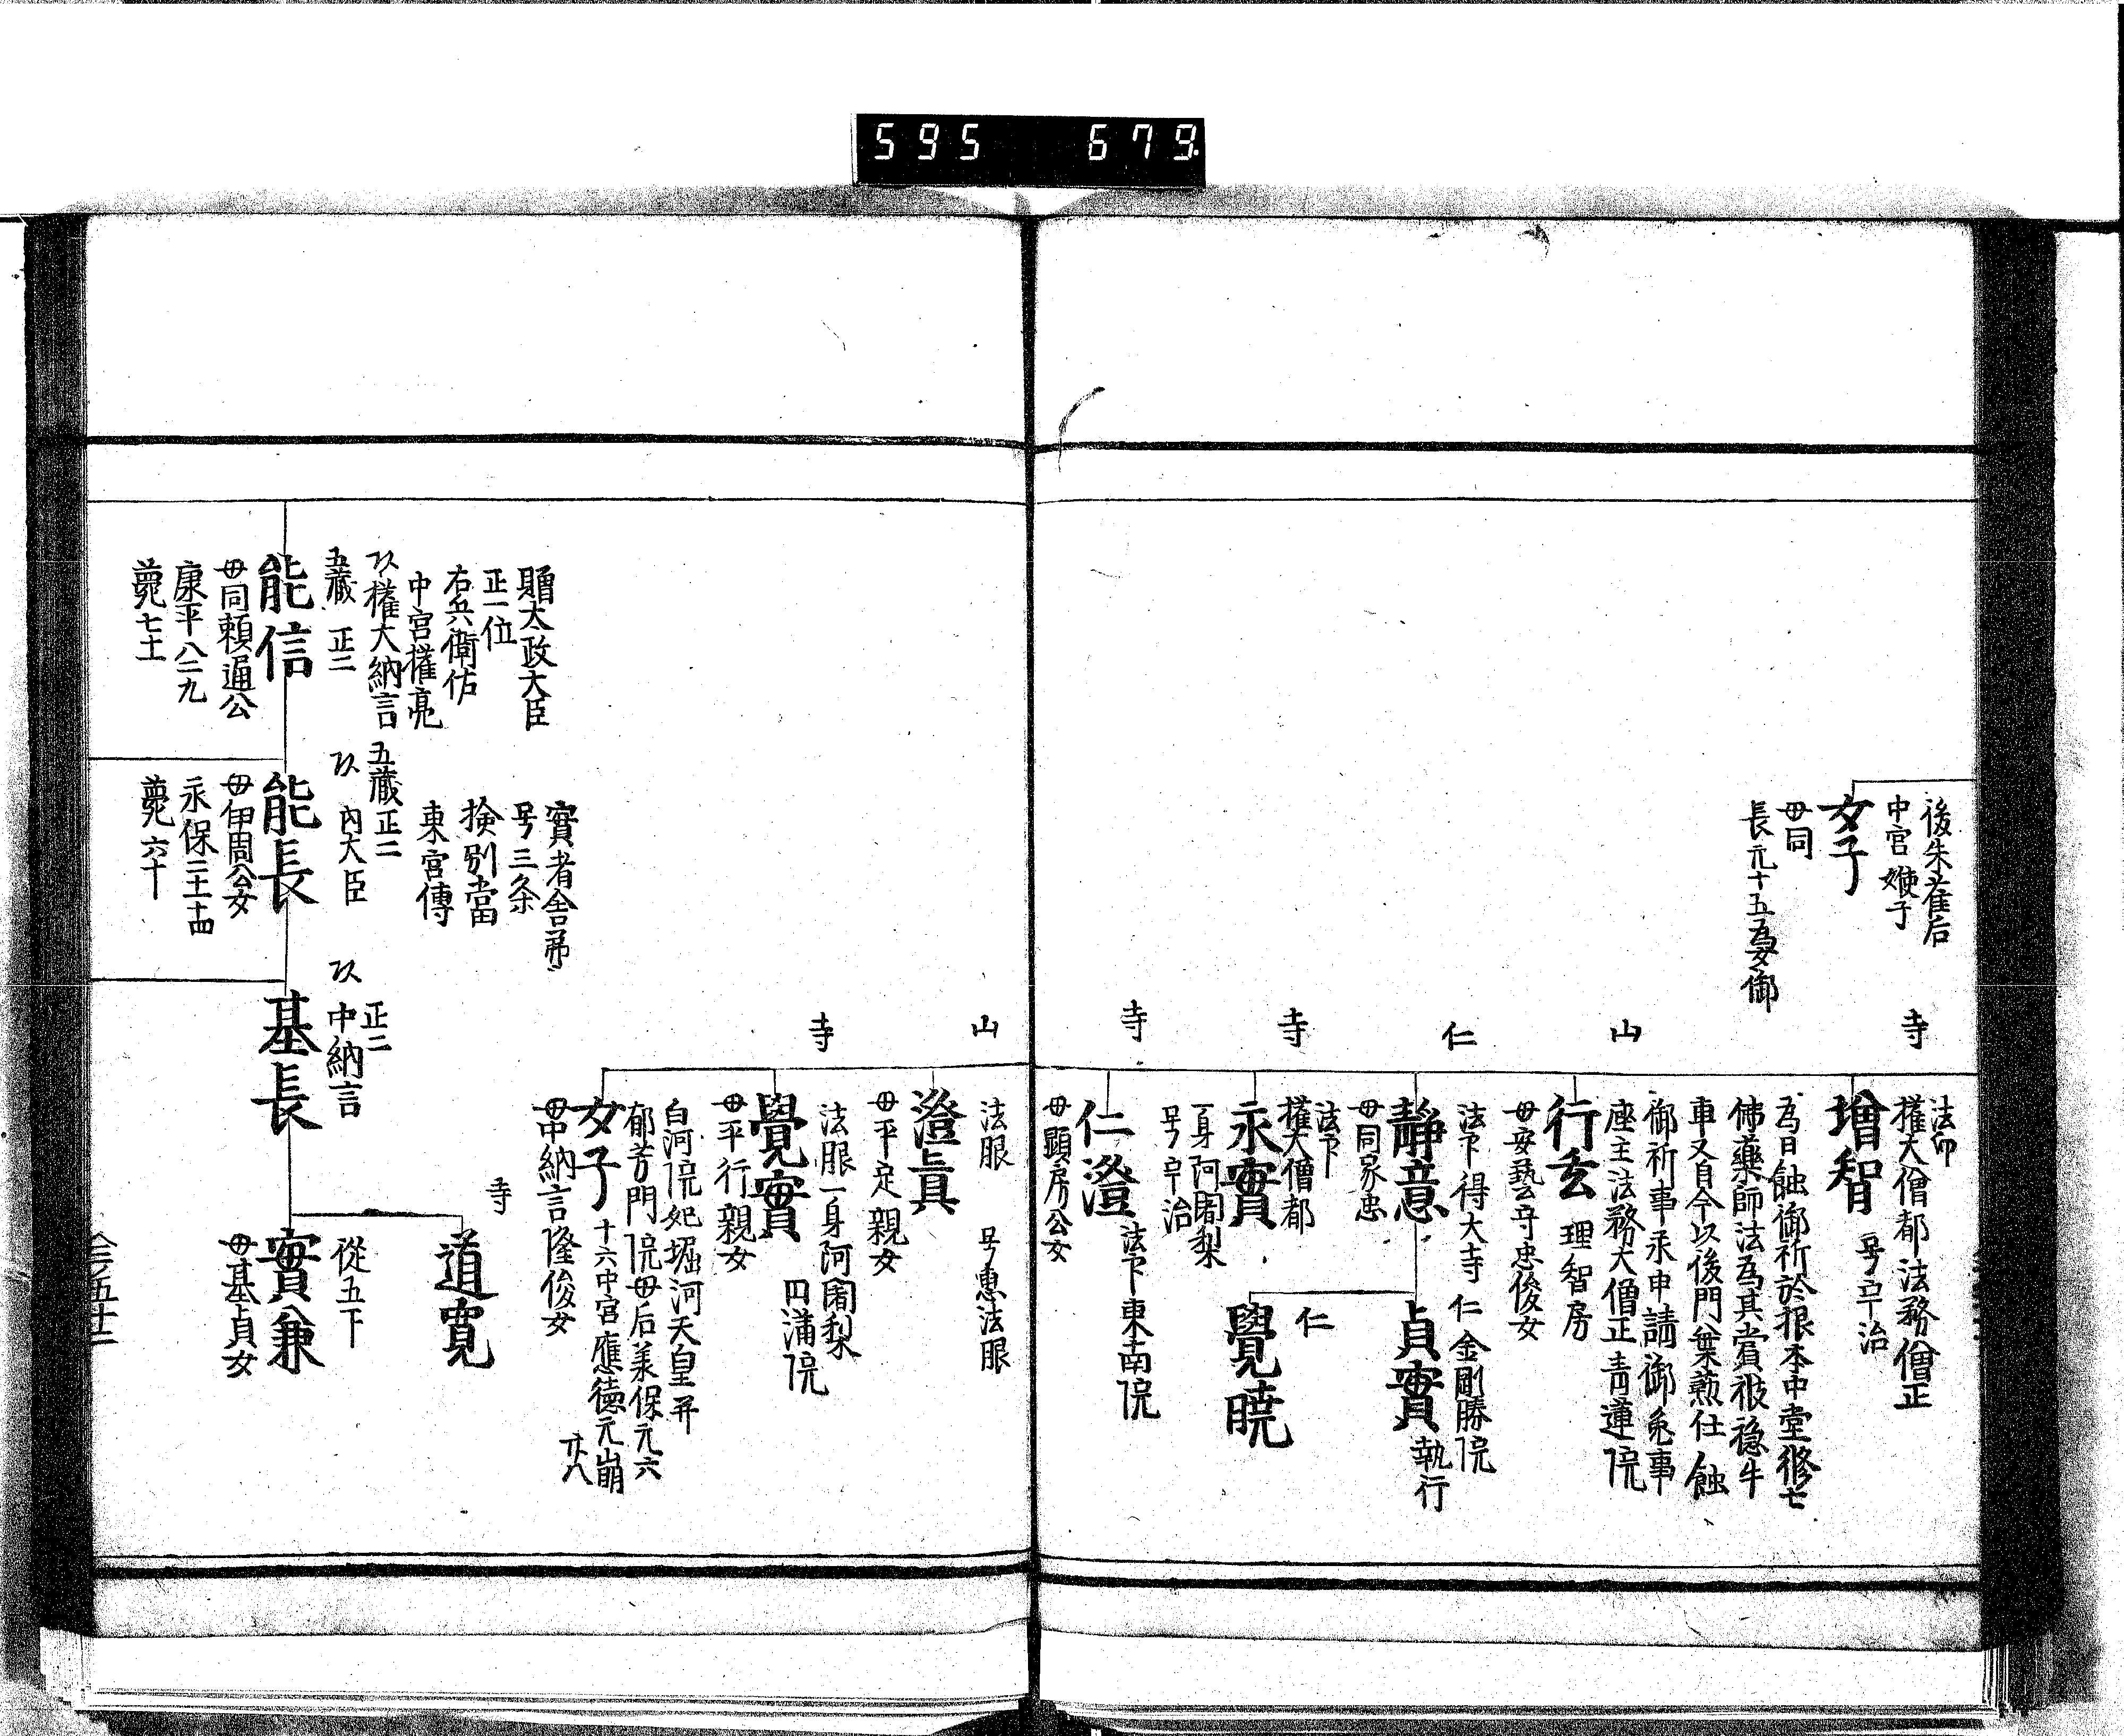 595 679
後朱雀后
中宮 嫄子
女子
母同
長元十五為女御
寺
法印
権大僧都 法務僧正
增智 号宇治
為日蝕御祈於根本中堂修七
佛藥師法為其賞被聴牛
車又自今以後門葉懃仕蝕
御祈事永申請御免事
座主法務大僧正青蓮院
山
行玄 理智房
母安藝守忠俊女
仁
法下 得大寺
靜意
母同家忠
仁 金剛勝院
貞實 執行
仁
覺暁
寺
法下
権大僧都
永實
一身阿闍梨
号宇治
寺
仁澄 法下東南院
母顕房公女
山
法眼 号恵法眼
澄真
母平定親女
寺
法眼一身阿闍梨
覺實 円満院
母平行親女
白河院妃堀河天皇并
郁芳門院母后美保元六
女子 十六中宮應徳元崩
廿八
母中納言隆俊女
贈太政大臣
正一位
右兵衛佐
中宮権亮
以権大納言
五蔵 正二
能信
母同頼通公
康平八二九
薨七十一
實者舎弟
号三条
検別當
東宮傳
五蔵正二
以 内大臣
能長
母伊周公女
永保二十一十四
薨六十一
正二
以 中納言
基長
寺
道寛
從五下
實兼
母基貞女